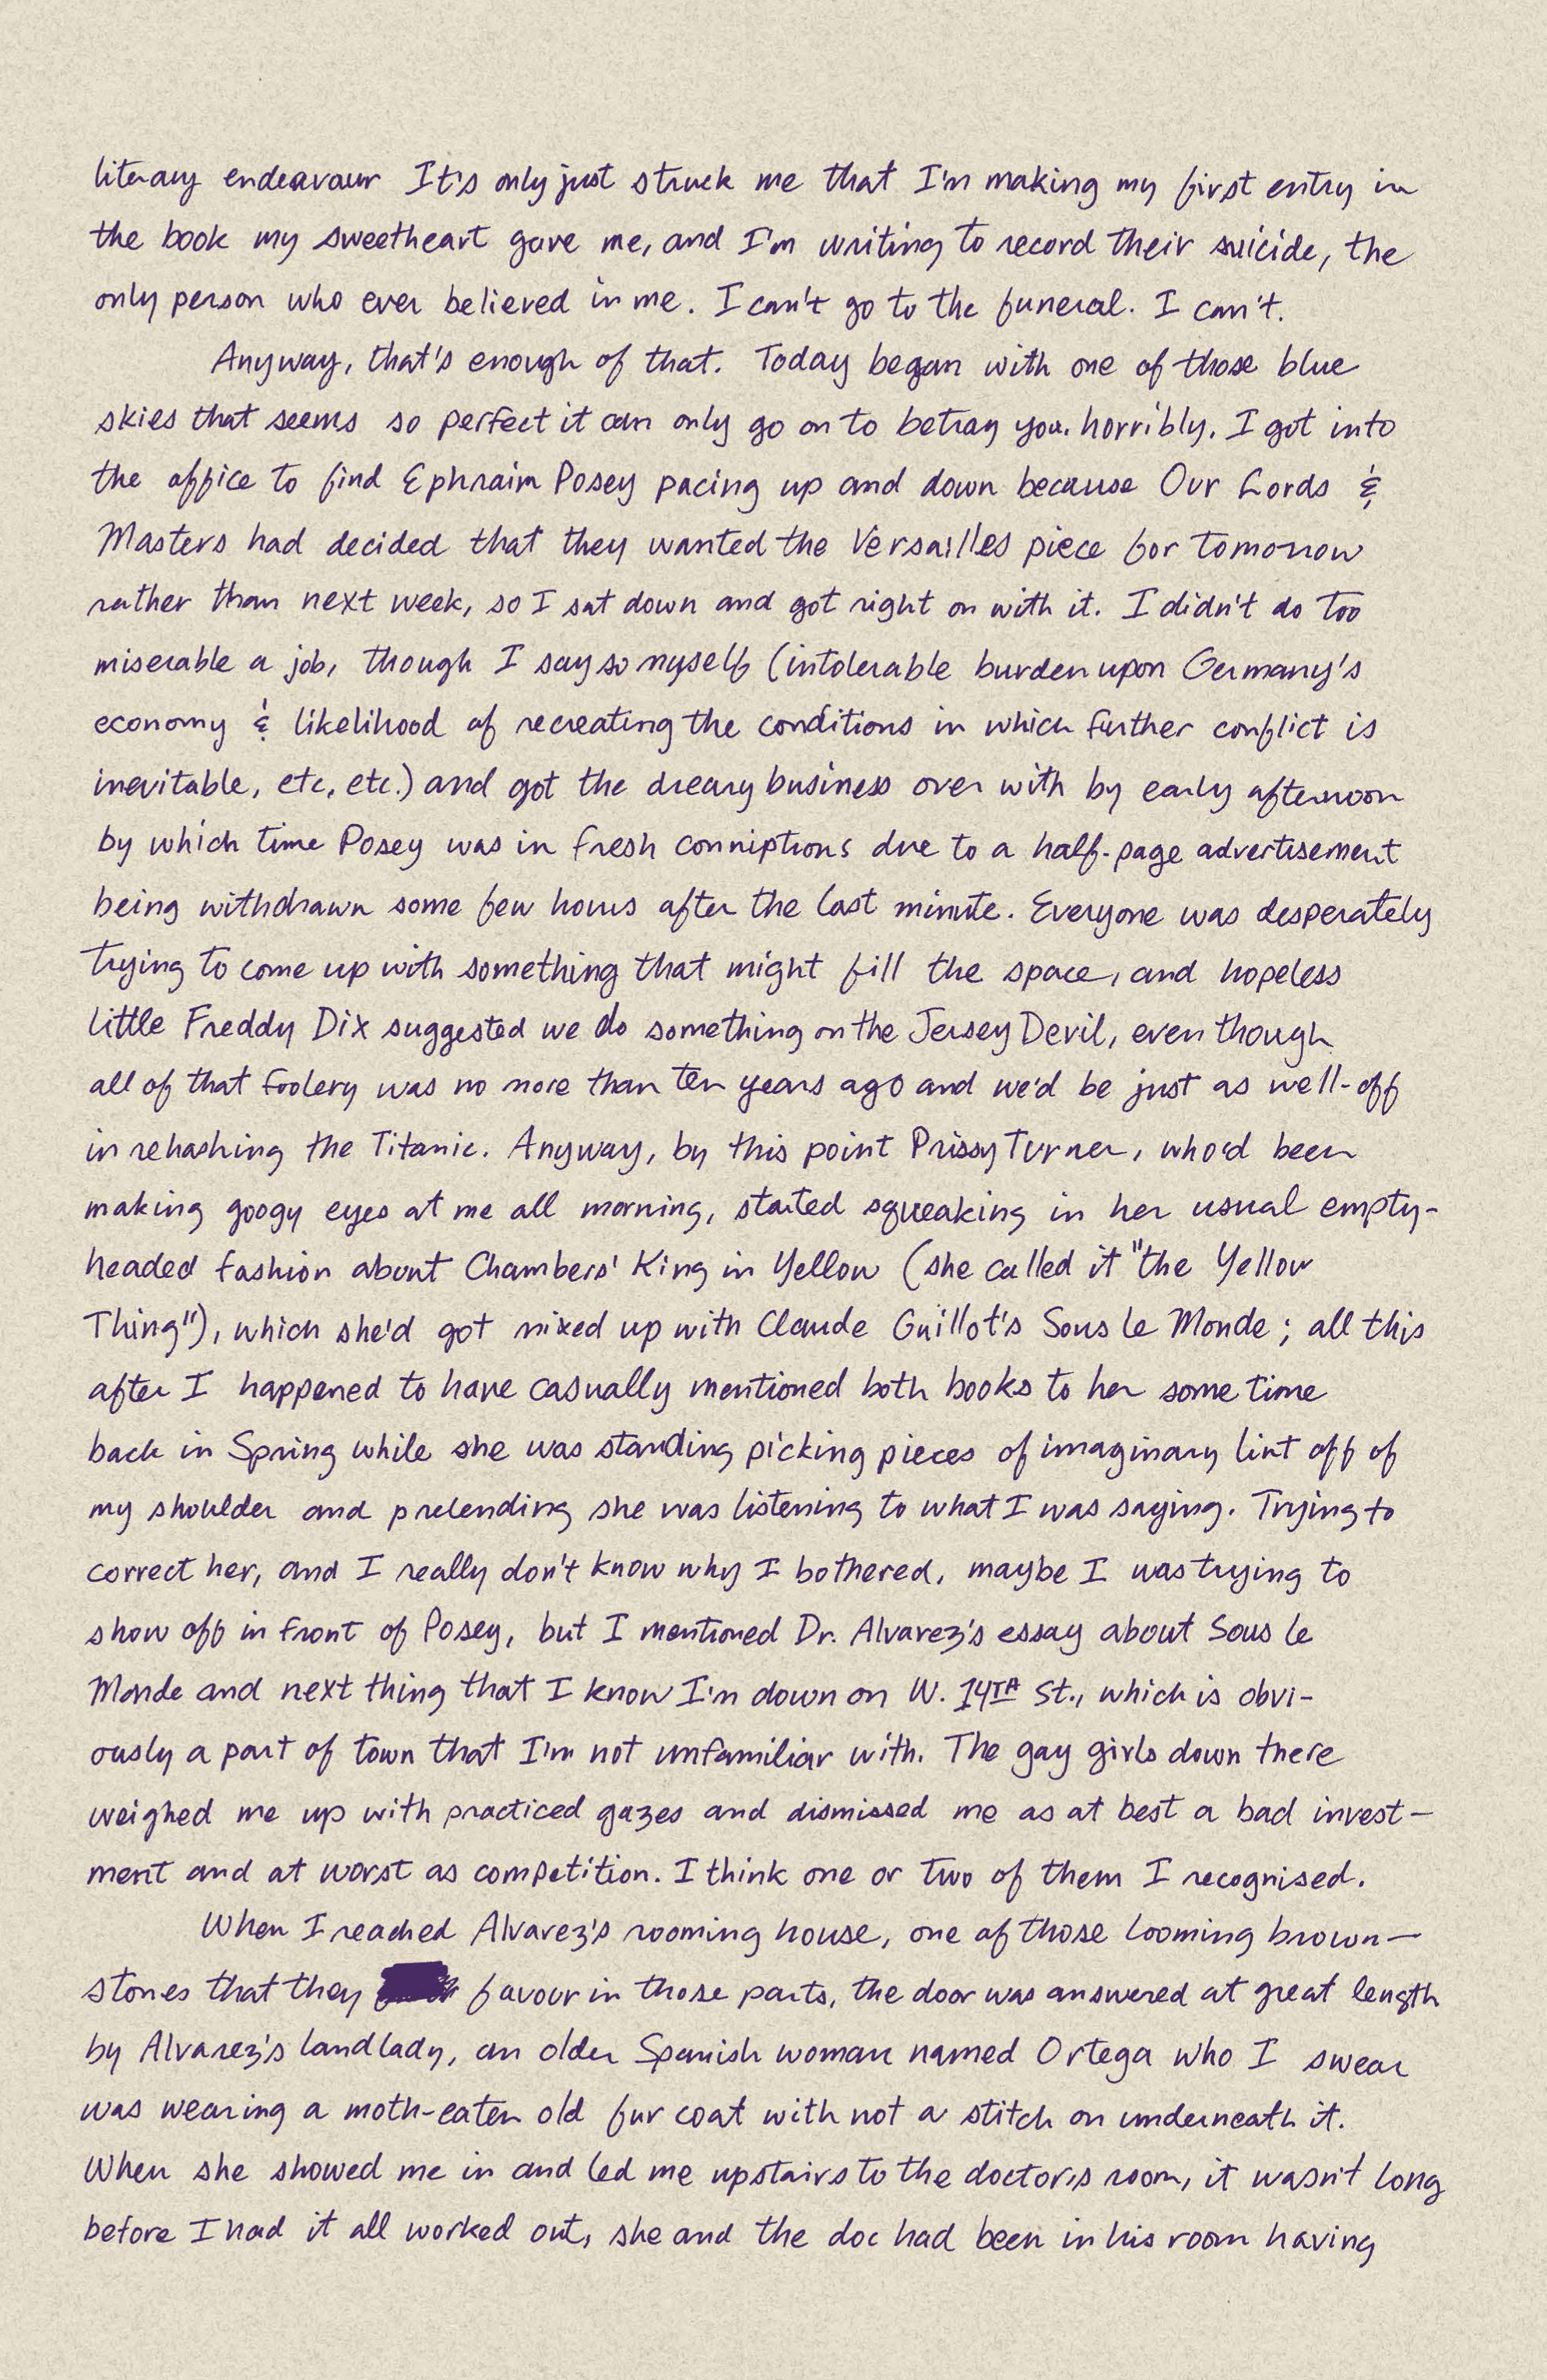 literary endeavour It's only just struck me that I'm making my first entry in
the book my sweetheart gave me, and I'm writing to record their suicide, the
only person who ever believed in me. I can't go to the funeral. I can't.
Anyway, that's enough of that. Today began with one of those blue
skies that seems so perfect it can only go on to betray you. horribly. I got into
the office to find Ephraim Posey pacing up and down because Our Lords &
Masters had decided that they wanted the Versailles piece for tomorrow
rather than next week, so I sat down and got right on with it. I didn't do too
miserable a job, though I say so myself (intolerable burden upon Germany's
economy & likelihood of recreating the conditions in which further conflict is
inevitable, etc, etc.) and got the dreary business over with by early afternoon
by which time Posey was in fresh conniptions due to a half-page advertisement
being withdrawn some few hours after the last minute. Everyone was desperately
trying to come up with something that might fill the space, and hopeless
little Freddy Dix suggested we do something on the Jersey Devil, even though
all of that foolery was no more than ten years ago and we'd be just as well-off
in rehashing the Titanic. Anyway, by this point Prissy Turner, who'd been
making googy eyes at me all morning, started squeaking in her usual empty-
headed fashion about Chambers' King in Yellow (she called it "the Yellow
Thing"), which she'd got mixed up with Claude Guillot's Sous Le Monde; all this
after I happened to have casually mentioned both books to her some time
back in Spring while she was standing picking pieces of imaginary lint off of
my shoulder and pretending she was listening to what I was saying. Trying to
correct her, and I really don't know why I bothered, maybe I was trying to
show off in front of Posey, but I mentioned Dr. Alvarez's essay about Sous Le
Monde and next thing that I know I'm down on W. 14TH St., which is obvi-
ously a part of town that I'm not unfamiliar with. The gay girls down there
weighed me up with practiced gazes and dismissed me as at best a bad invest-
ment and at worst as competition. I think one or two of them I recognised.
When I reached Alvarez's rooming house, one of those looming brown-
stones that they favour in those parts, the door was answered at great length
by Alvarez's landlady, an older Spanish woman named Ortega who I swear
was wearing a moth-eaten old fur coat with not a stitch on underneath it.
When she showed me in and led me upstairs to the doctor's room, it wasn't long
before I had it all worked out, she and the doc had been in his room having